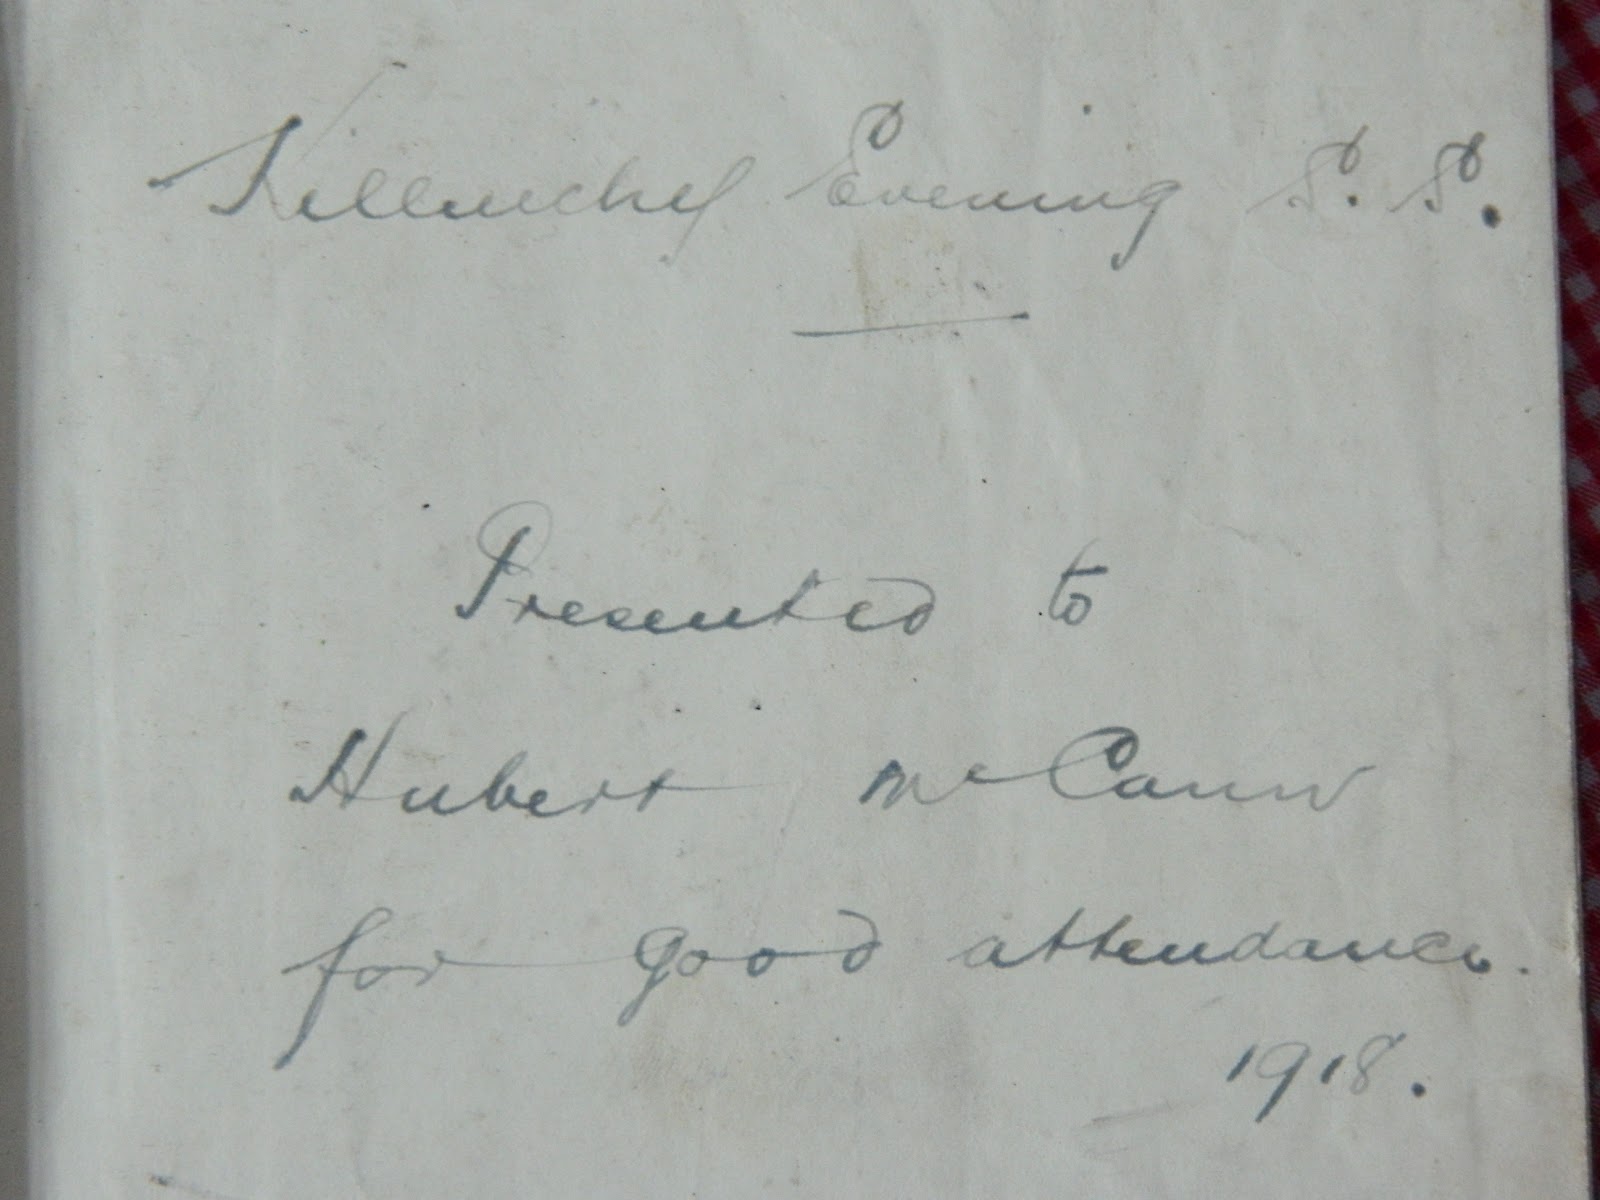 Killinchy Evening S. S.
Presented to
Hubert McCann
for good attendance.
1918.